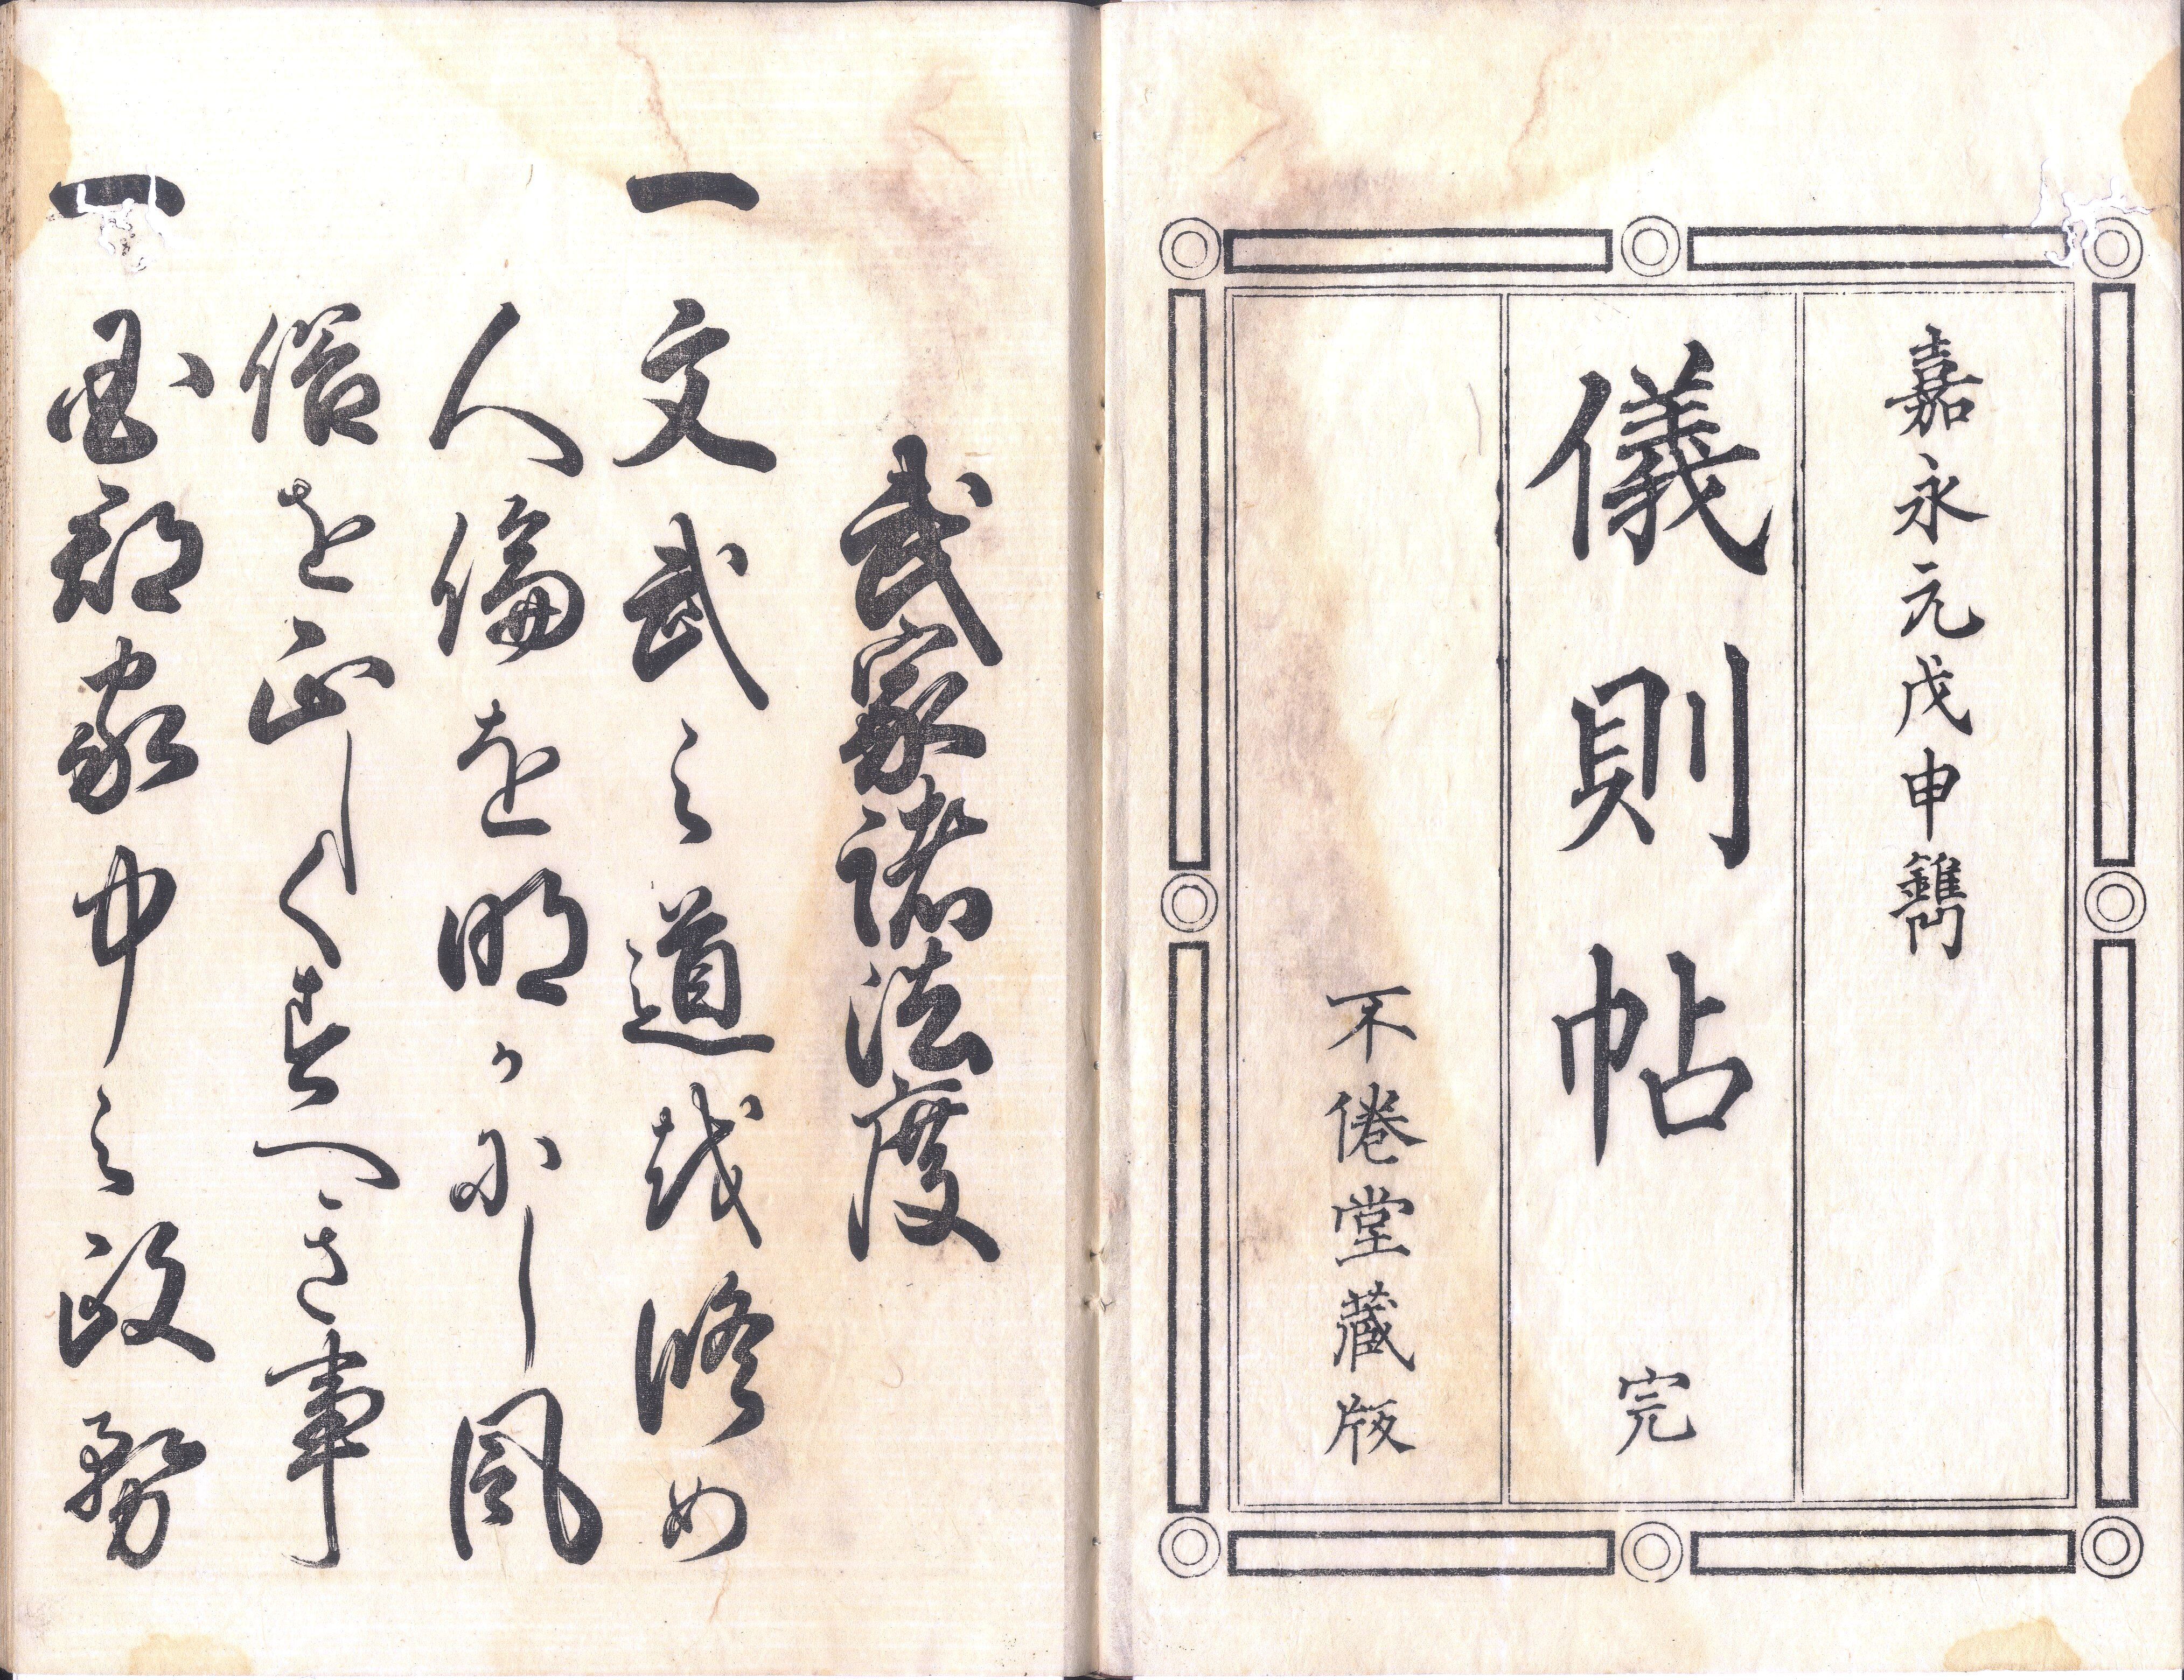 嘉永元戊申鐫
儀則帖 完
不倦堂藏版
武家諸法度
一 文武之道越修め
人倫を明かにし風
俗を正しくすへき事
一 国郡家中之政務